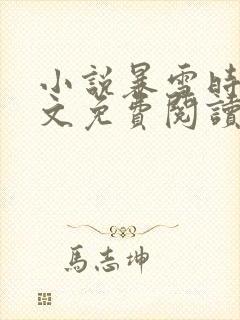 小説暴雪時
文免費閱讀
馬志坤